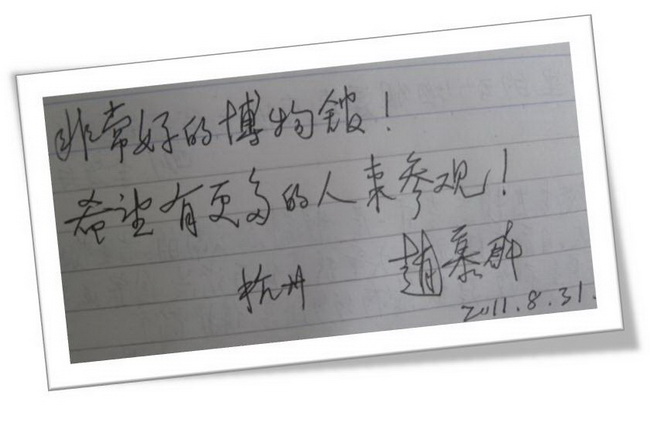 非常好的博物馆！
希望有更多的人来参观！
杭州 赵慕
2011.8.31.